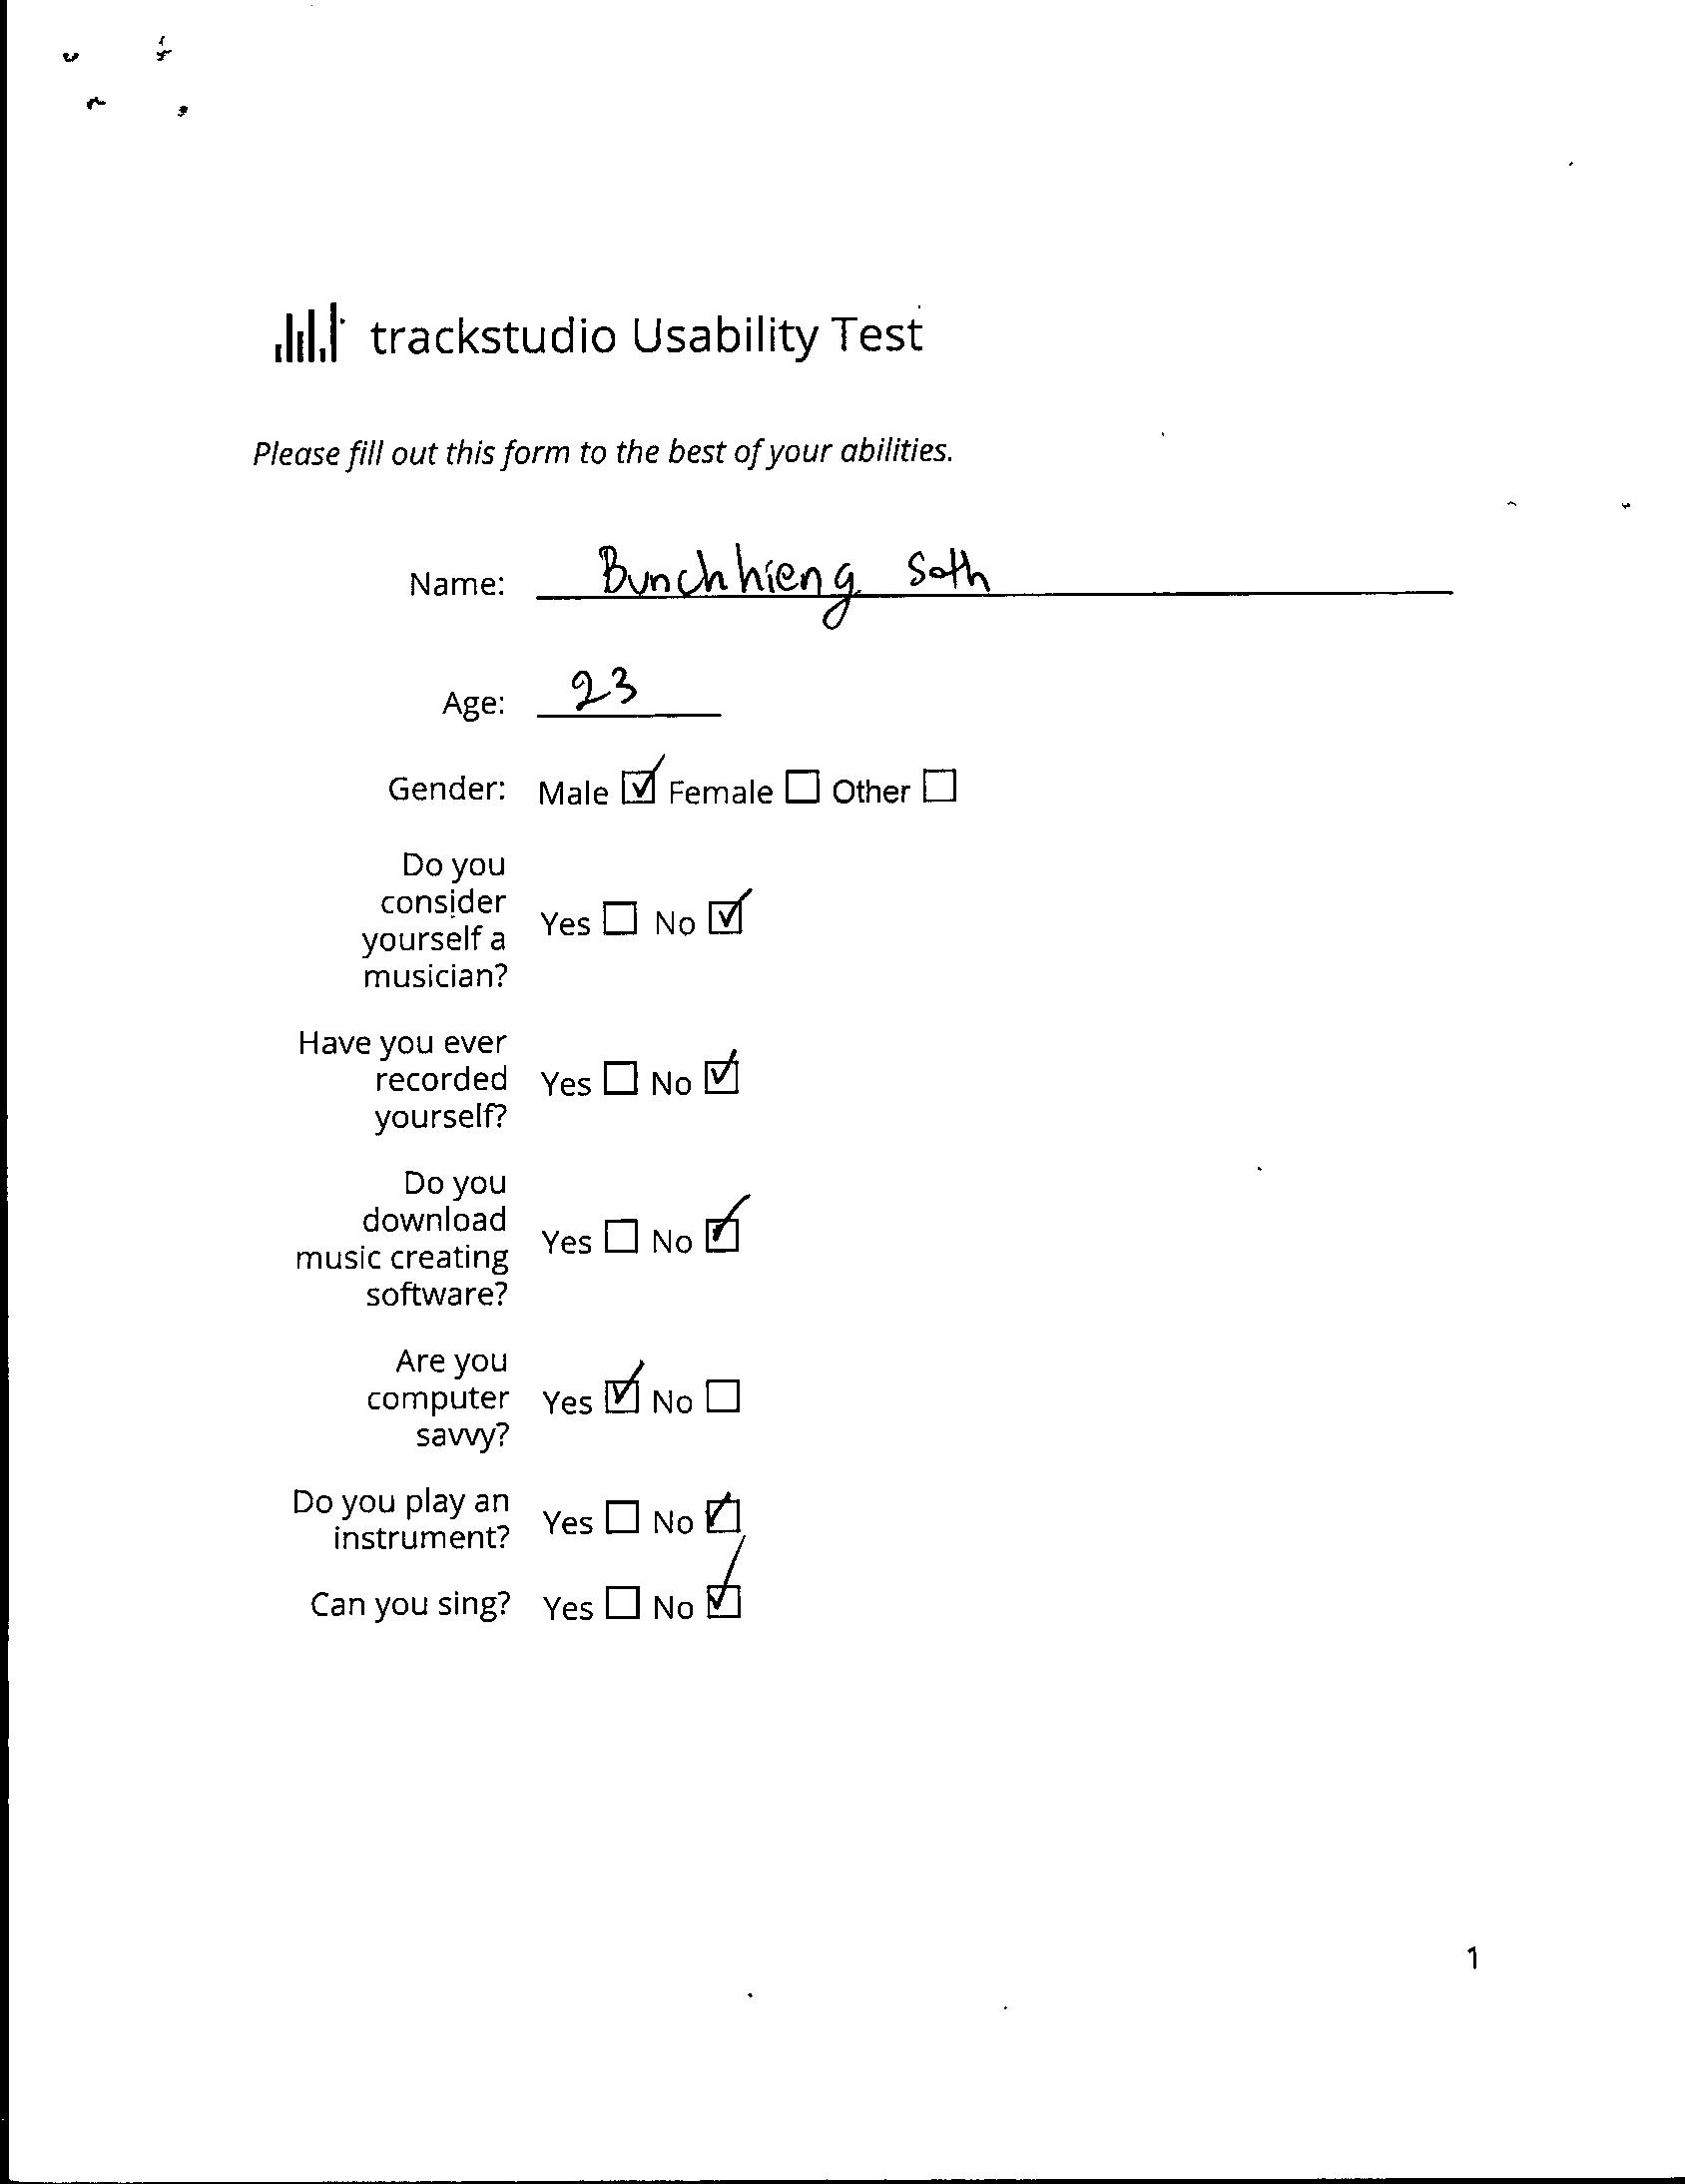 trackstudio Usability Test
Please fill out this form to the best of your abilities.
Name: Bunchhieng Soth
Age: 23
Gender: Male ☑ Female ☐ Other ☐
Do you
consider
yourself a
musician?
Yes ☐ No ☑
Have you ever
recorded
yourself?
Yes ☐ No ☑
Do you
download
music creating
software?
Yes ☐ No ☑
Are you
computer
savvy?
Yes ☑ No ☐
Do you play an
instrument?
Yes ☐ No ☑
Can you sing? Yes ☐ No ☑
1